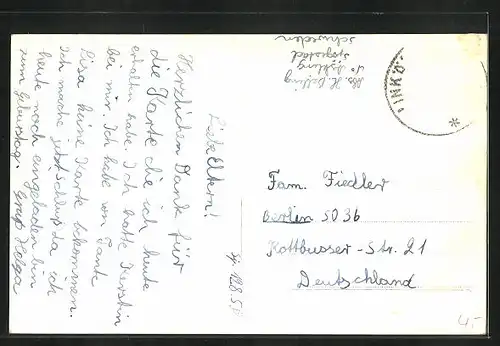 Liebe Eltern!
Herzlichen Dank für
die Karte die ich heute
erhalten habe. Ich hatte Kerstin
bei mir. Ich habe von Tante
Lisa keine Karte bekommen.
Ich mache jetzt Schluß da ich
heute noch eingeladen bin
zum Geburtstag. Gruß Helga
Abs. H.
Schweden
Fam. Fiedler
Berlin SO36
Kottbusser - Str. 21
Deutschland
4,-